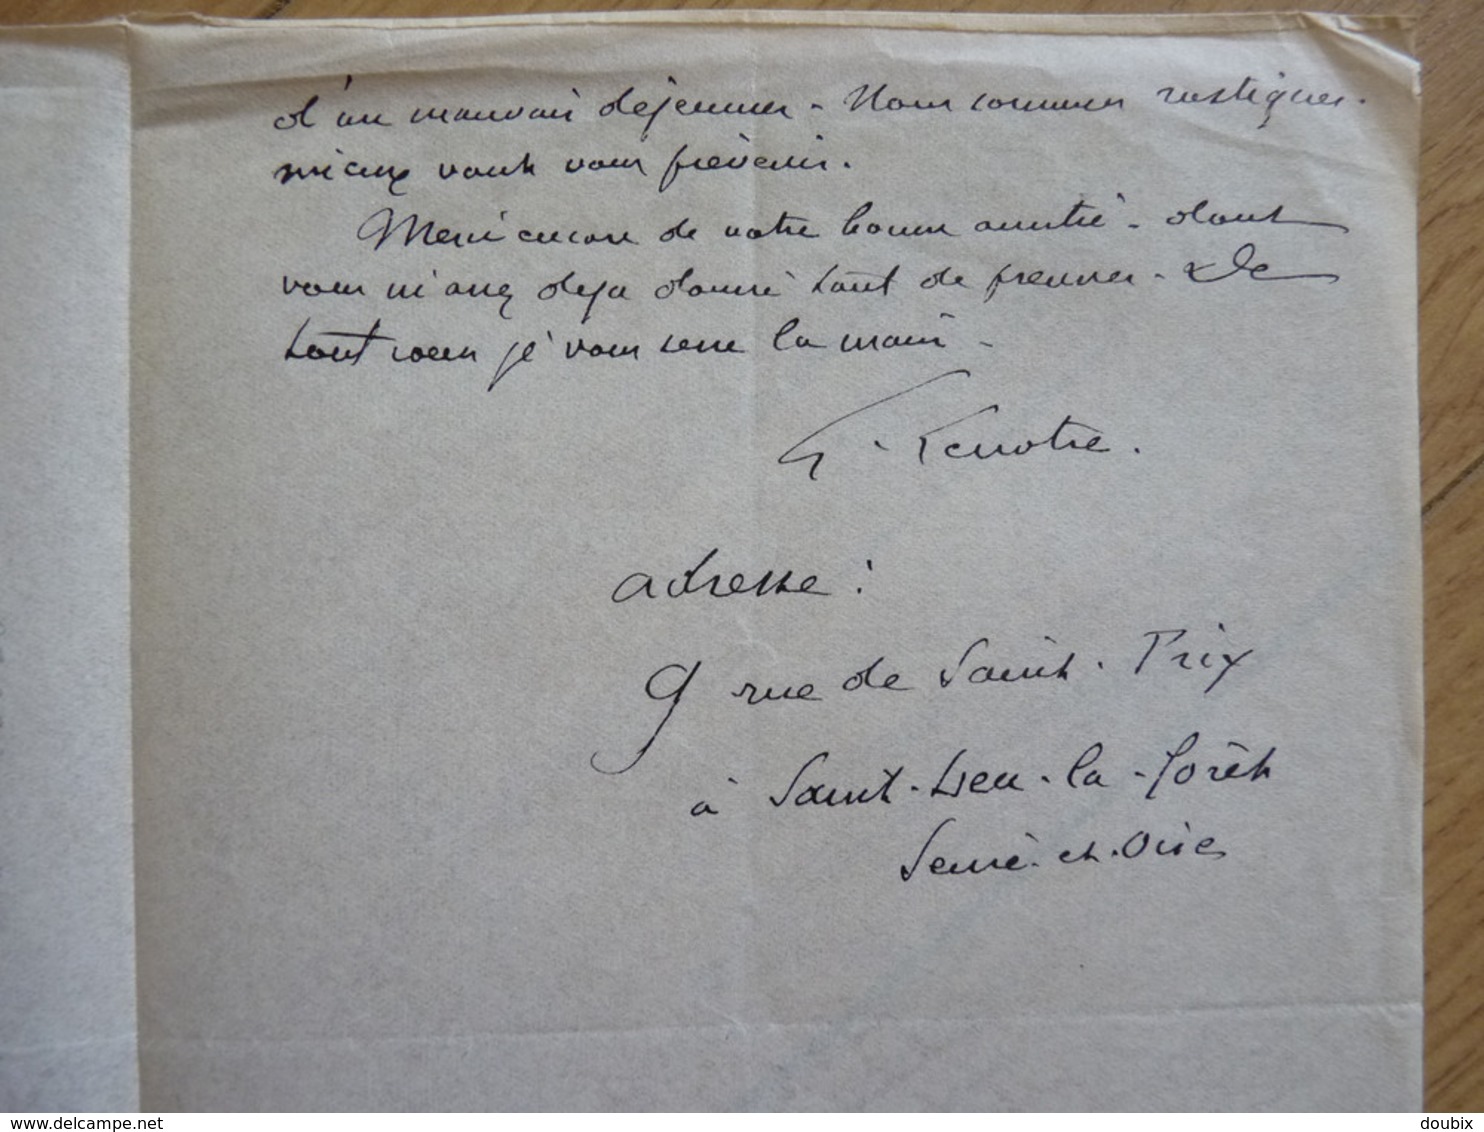 d'un mauvais déjeuner - Nous sommes rustiques.
mieux vaut vous prévenir.
Merci encore de votre bonne amitié - dont
vous m'avez deja donné tant de preuves - De
tout coeur je vous serre la main -
G. Lenotre.
adresse :
9 rue de Saint-Prix
à Saint-Leu-la-forêt
Seine-et-Oise
www.delcampe.net
doubix